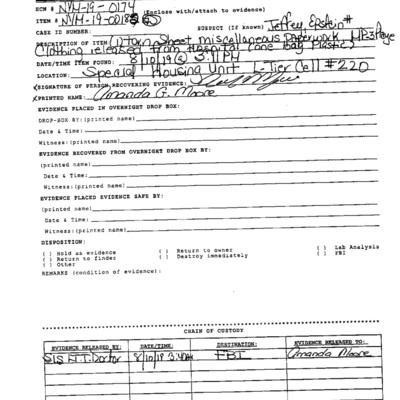 SCN # NYM-19-0174 (Enclose with/attach to evidence)
ITEM # NYM-19-0018
CASE ID NUMBER: SUSPECT (If known) Jeffrey Epstein #
DESCRIPTION OF ITEM 1) torn Sheet miscellaneous Paperwork
Clothing released from Hospital (one bag Plastic)
DATE/TIME ITEM FOUND: 8/10/19 @ 3:11 PM
LOCATION: Special Housing Unit L-Tier Cell # 220
SIGNATURE OF PERSON RECOVERING EVIDENCE:
PRINTED NAME: Amanda G. Moore
EVIDENCE PLACED IN OVERNIGHT DROP BOX:
DROP-BOX BY:(printed name)
Date & Time:
Witness:(printed name)
EVIDENCE RECOVERED FROM OVERNIGHT DROP BOX BY:
(printed name)
Date & Time:
Witness:(printed name)
EVIDENCE PLACED EVIDENCE SAFE BY:
(printed name)
Date & Time:
Witness:(printed name)
DISPOSITION:
( ) Hold as evidence ( ) Return to owner ( ) Lab Analysis
( ) Return to finder ( ) Destroy immediately ( ) FBI
( ) Other
REMARKS (condition of evidence):
CHAIN OF CUSTODY
EVIDENCE RELEASED BY: DATE/TIME: DESTINATION: EVIDENCE RELEASED TO:
SIS 8/10/19 FBI Amanda Moore